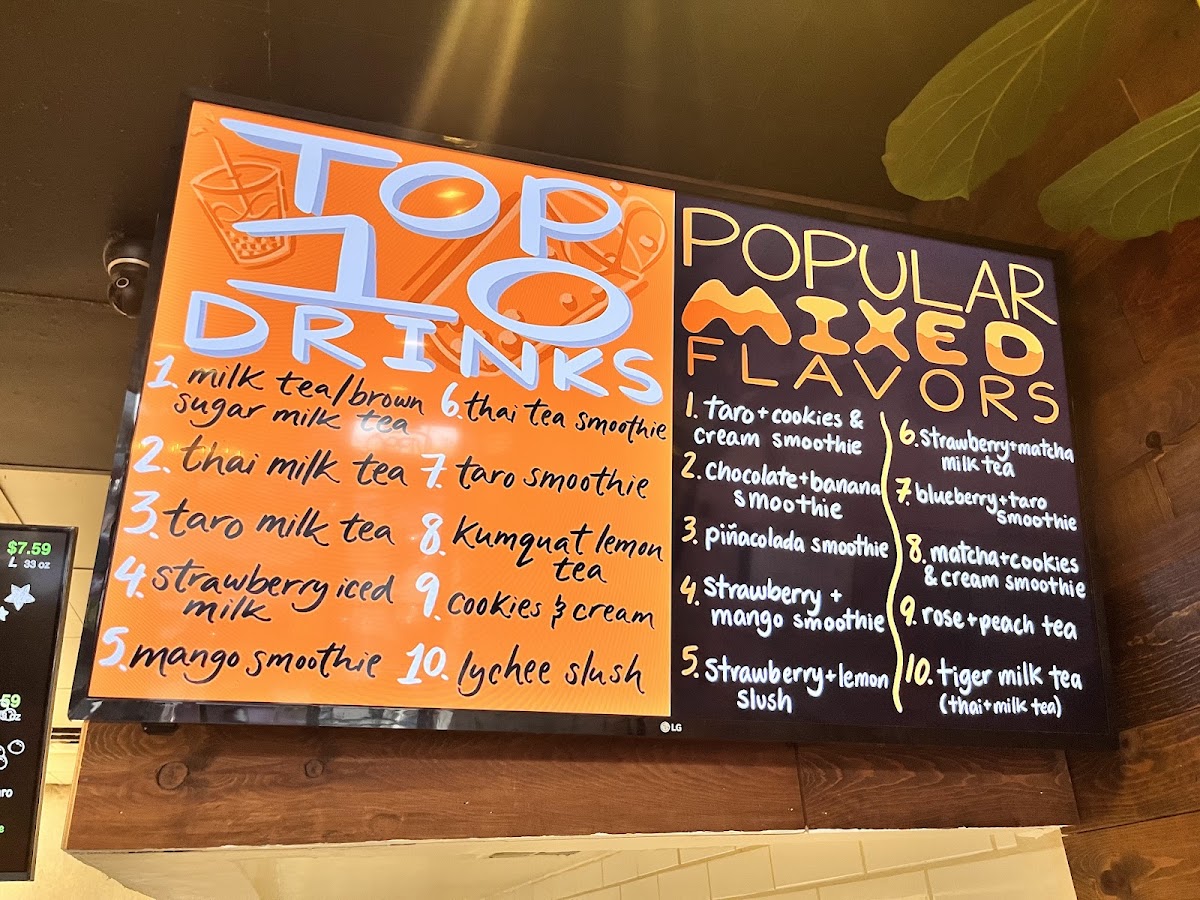 TOP
10
DRINKS
1. milk tea/brown
sugar milk tea
2. thai milk tea
3. taro milk tea
4. strawberry iced
milk
5. mango smoothie
6. thai tea smoothie
7. taro smoothie
8. kumquat lemon
tea
9. cookies & cream
10. lychee slush
POPULAR
MIXED
FLAVORS
1. taro + cookies &
cream smoothie
2. chocolate + banana
smoothie
3. piñacolada smoothie
4. strawberry +
mango smoothie
5. strawberry + lemon
slush
6. strawberry + matcha
milk tea
7. blueberry + taro
smoothie
8. matcha + cookies
& cream smoothie
9. rose + peach tea
10. tiger milk tea
(thai + milk tea)
LG
$7.59
L 33 oz